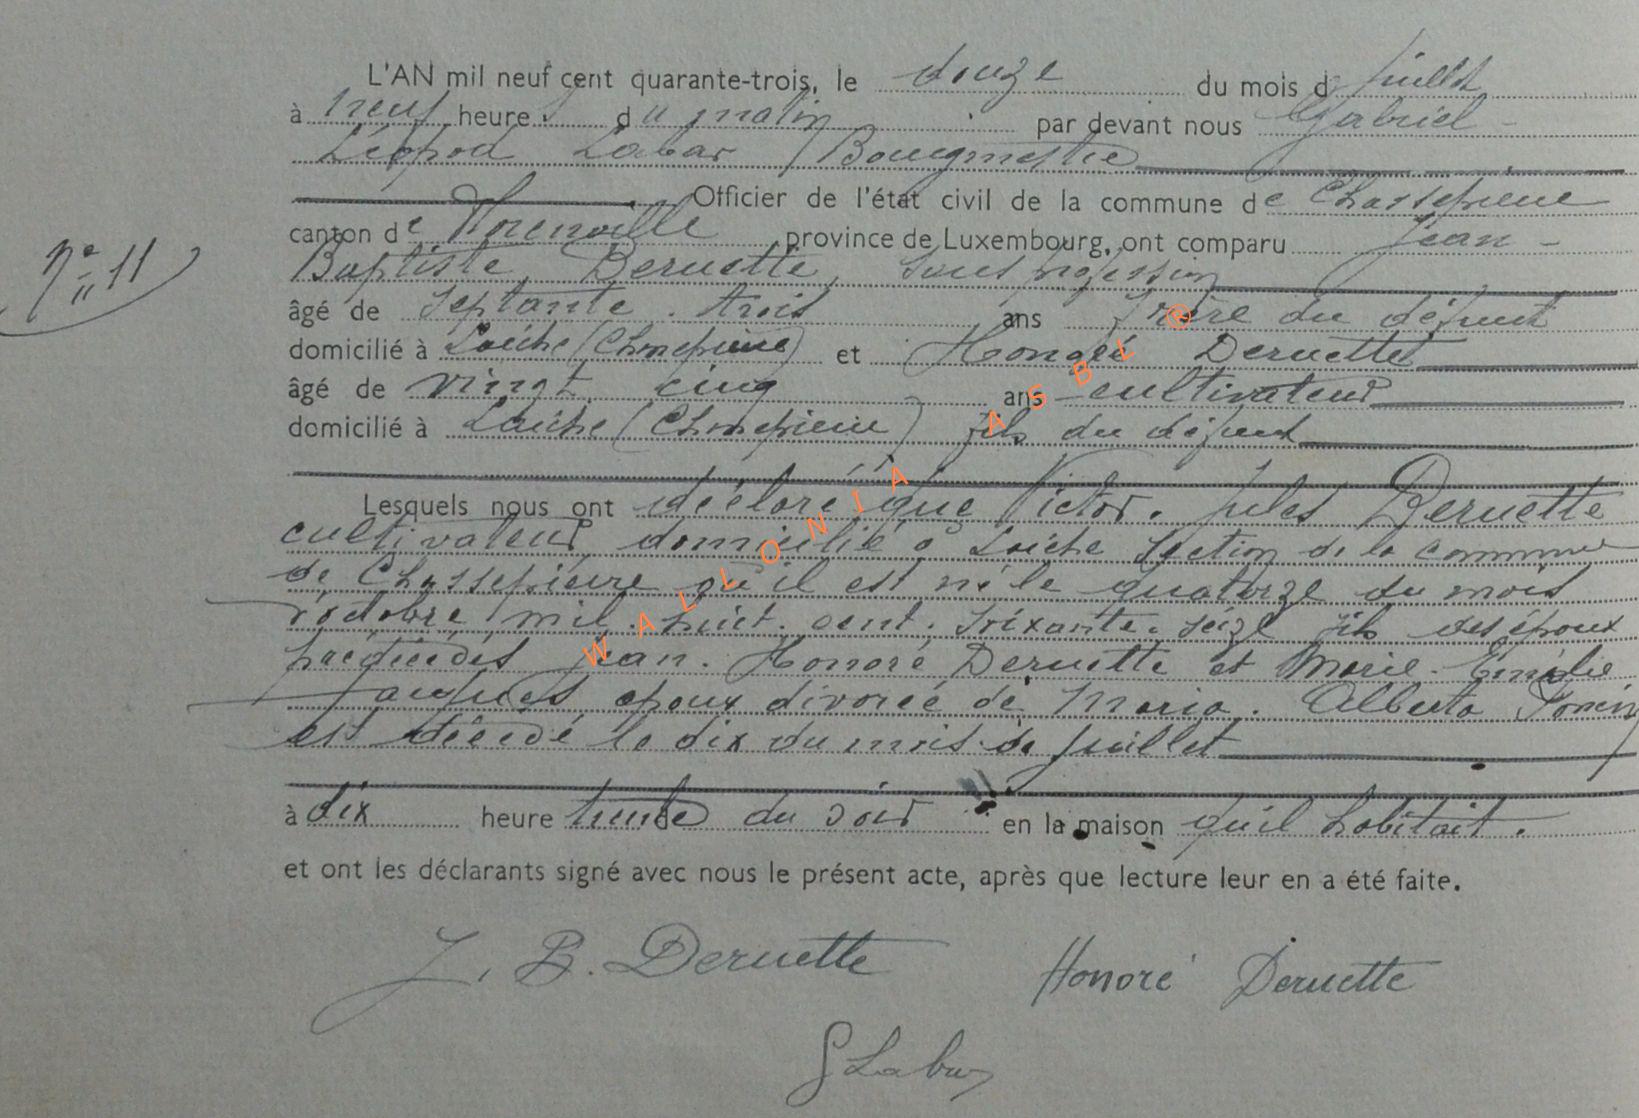 L'AN mil neuf cent quarante-trois, le douze du mois d Juillet
à neuf heure s du matin par devant nous Gabriel -
Léopod Labar Bourgmestre
Officier de l'état civil de la commune de Chassepierre
canton de Florenville province de Luxembourg, ont comparu Jean -
N° 11
Baptiste Deruette, sans profession
âgé de septante. trois ans frère du défunt
domicilié à Laiche (Chassepierre) et Honoré Deruette
âgé de vingt cinq ans cultivateur
domicilié à Laiche (Chassepierre) fils du défunt
Lesquels nous ont déclaré que Victor. Jules Deruette
cultivateur domicilié à Laiche section de la commune
de Chassepierre qu'il est né le quatorze du mois
d'octobre mil. huit. cent. soixante. seize fils des époux
précédés Jean. Honoré Deruette et Marie. Emélie
Jacques époux divorcé de Maria. Alberta
est décédé le dix du mois de Juillet
à dix heure trente du soir en la maison qu'il habitait.
et ont les déclarants signé avec nous le présent acte, après que lecture leur en a été faite.
J. B. Deruette Honoré Deruette
G Labar
WALLONIA ASBL ®